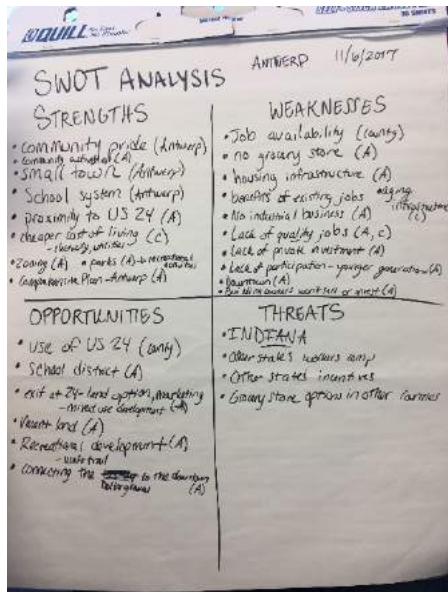 QUILL
ANTWERP 11/6/2017
SWOT ANALYSIS
STRENGTHS
• Community pride (Antwerp)
• Community activities (A)
• Small town (Antwerp)
• School system (Antwerp)
• proximity to US 24 (A)
• cheaper cost of living (C)
- housing, utilities
• Zoning (A) • parks (A)
• Comprehensive Plan - Antwerp (A)
WEAKNESSES
• Job availability (county)
• no grocery store (A)
• housing infrastructure (A)
• benefits of existing jobs • aging infrastructure (C)
• No industrial business (A)
• Lack of quality jobs (A, C)
• Lack of private investment (A)
• Lack of participation - younger generation (A)
• Downtown (A)
• Building owners won't sell or invest (A)
OPPORTUNITIES
• Use of US 24 (county)
• School district (A)
• exit at 24 - land option, marketing
- mixed use development (A)
• Vacant land (A)
• Recreational development (A)
• Connecting the to the downtown
(A)
THREATS
• INDIANA
• Other state's workers comp
• Other states incentives
• Grocery store options in other counties